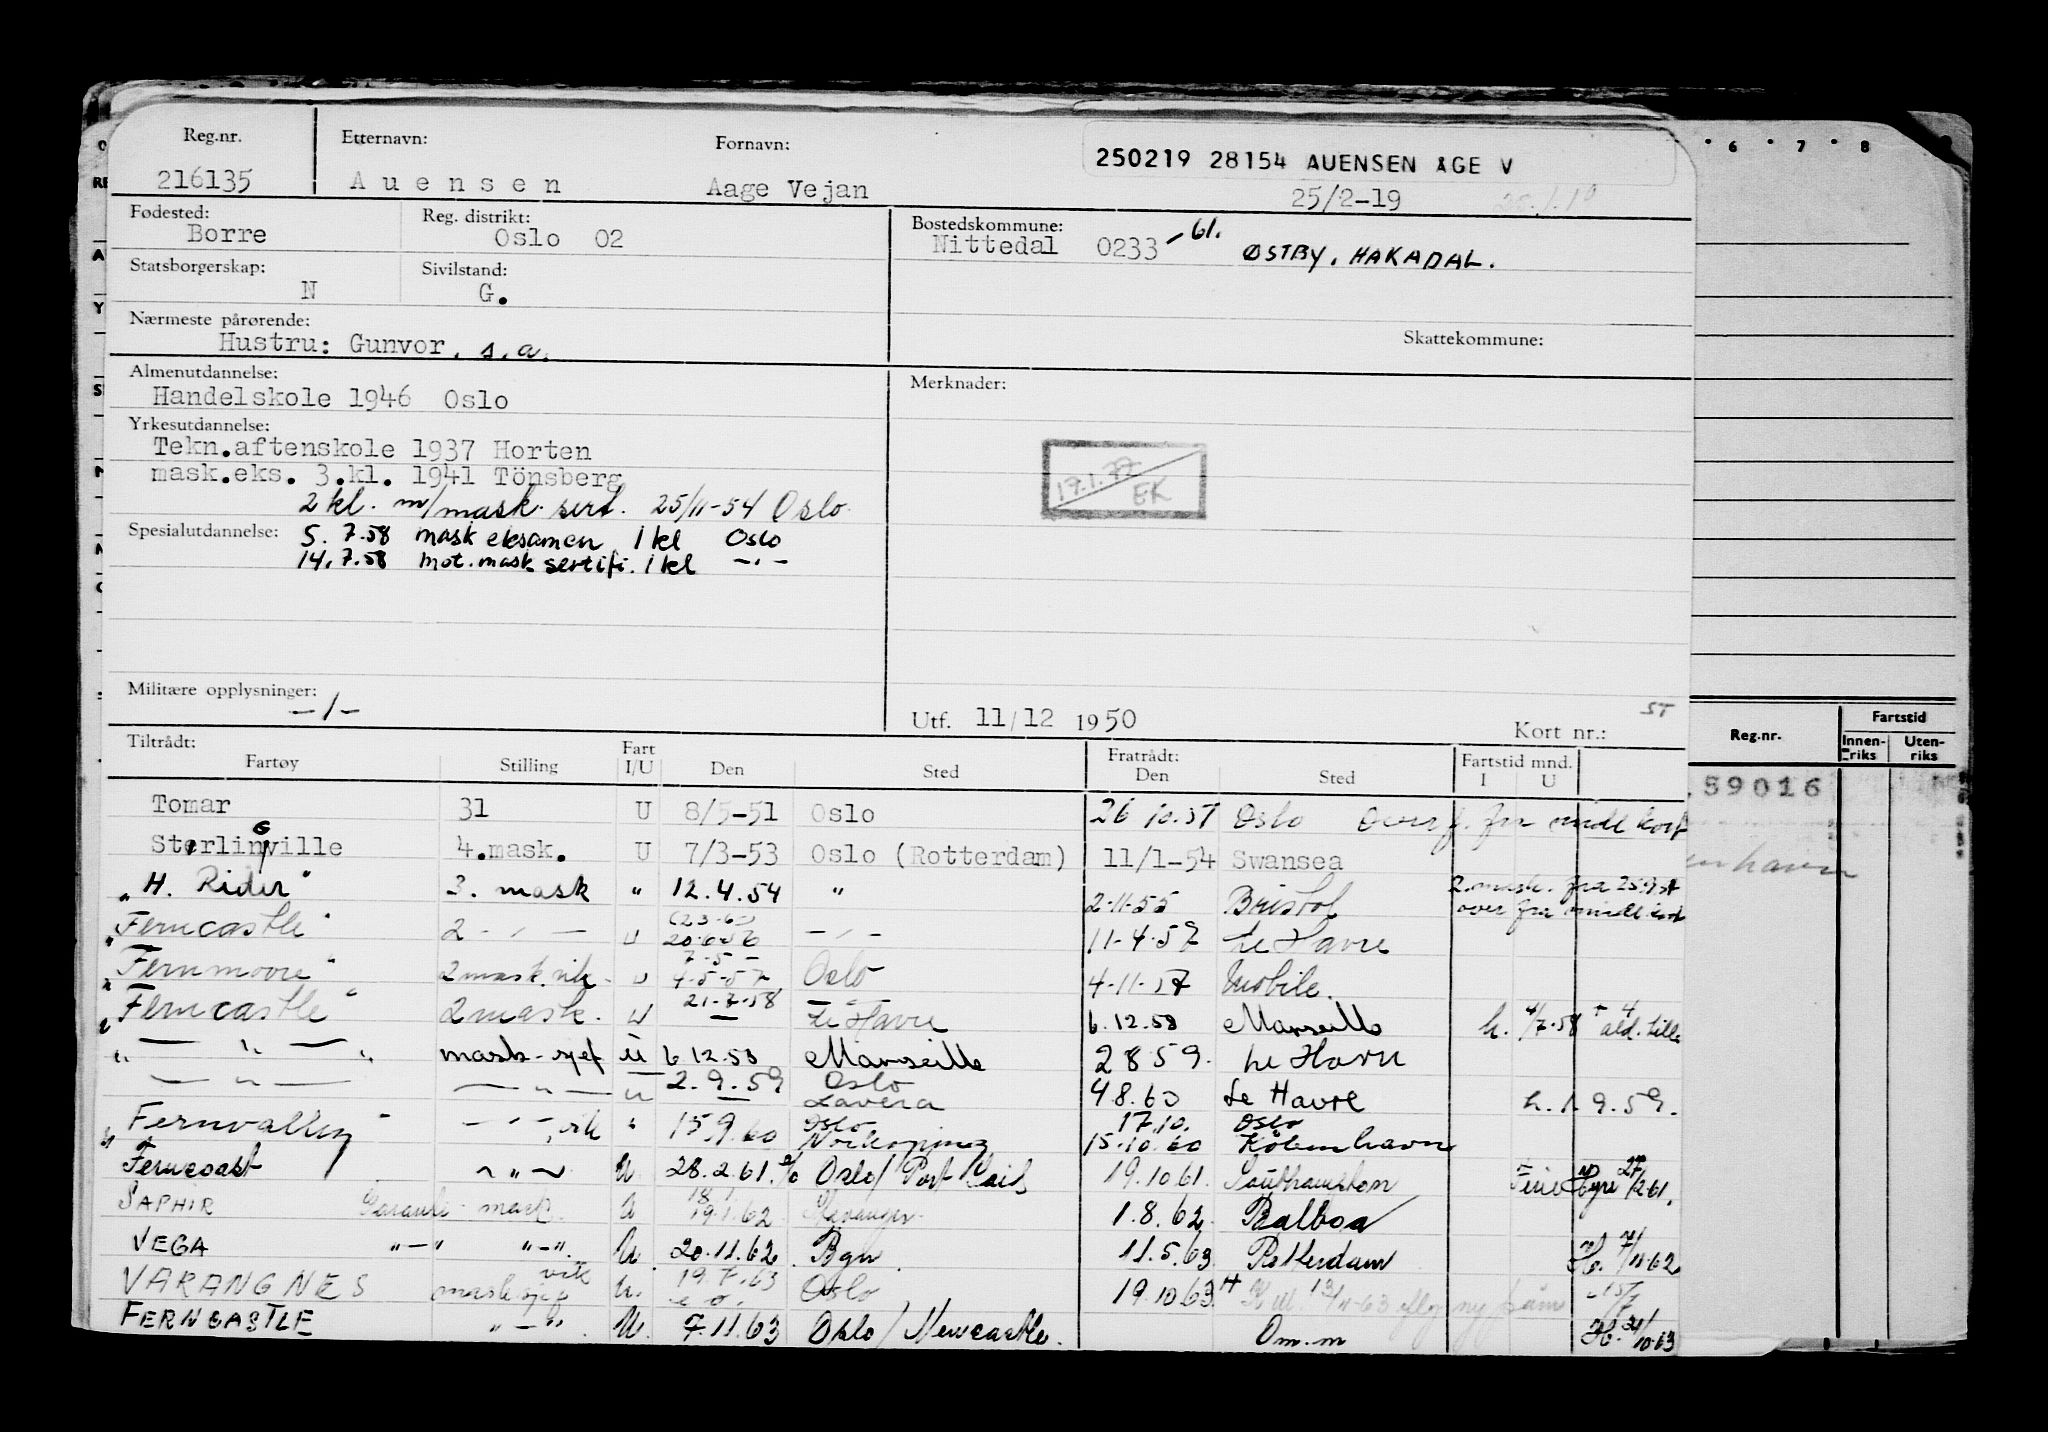 Reg.nr. Etternavn: Fornavn: 250219 28154 AUENSEN ÅGE V
216135 Auensen Aage Vejan 25/2-19
Fødested: Reg. distrikt: Bostedskommune:
Borre Oslo 02 Nittedal 0233 -61. ØSTBY, HAKADAL.
Statsborgerskap: Sivilstand:
N G.
Nærmeste pårørende: Skattekommune:
Hustru: Gunvor, s.a.
Almenutdannelse: Merknader:
Handelskole 1946 Oslo
Yrkesutdannelse:
Tekn.aftenskole 1937 Horten
mask.eks. 3.kl. 1941 Tönsberg
19.1.77 EK
2 kl. m/mask. sert. 25/11-54 Oslo.
Spesialutdannelse: 5. 7.58 mask eksamen 1 kl Oslo
14.7.58 mot.mask sertifi. 1 kl -"-
Militære opplysninger:
-/-
Utf. 11/12 1950 Kort nr.: ST
Tiltrådt: Fart Fratrådt: Fartstid mnd.
Fartøy Stilling I/U Den Sted Den Sted I U
Tomar 31 U 8/5-51 Oslo 26 10.51 Oslo Overf. fra midl kort
Sterlingville 4.mask. U 7/3-53 Oslo (Rotterdam) 11/1-54 Swansea
"H. Rider" 3. mask " 12.4.54 " 2-11-55 Bristol 2.mask. fra 25.9.54
over fra midl kort
"Ferncastle" 2 - " - U (23-6) 20.6.56 - " - 11-4-57 Le Havre
"Fernmoore" 2 mask.vik. U 7-5- 4-5-57 Oslo 4-11-57 Mobile.
"Ferncastle" 2 mask. U 21-7-58, Le Havre 6.12.58 Marseille h. 4/7.58
" — " — " mask-sjef U 6.12.58 Marseille 2 8 59. Le Havre
— " — — " — U 2.9.59 Oslo Lavera 4 8.60 Le Havre h. 1 9.59.
"Fernvalley" - " - vik " 15.9.60 Oslo Norkoping 17.10. 15.10.60 Oslo Köbenhavn
Ferncoast - " - U. 28.2.61. Oslo/Port Said 19.10 61. Southampton Ferie Hyre 27/2-61.
SAPHIR Garanti mask. U 18.1 19.1.62 Stavanger. 1.8.62. Balboa
VEGA " - " " - ". U. 20.11.62 Bgn. 11.5.63 Rotterdam H. 7/11-62
VARANGNES mask.sjef vik U. 19.7.63 e.o. Oslo 19.10.63 ny påm 15/7
FERNCASTLE " - ". U. 7.11.63 Oslo/Newcastle. Om.m H. 31/10-63
6 7 8
Reg.nr. Fartstid
Innenriks Utenriks
59016